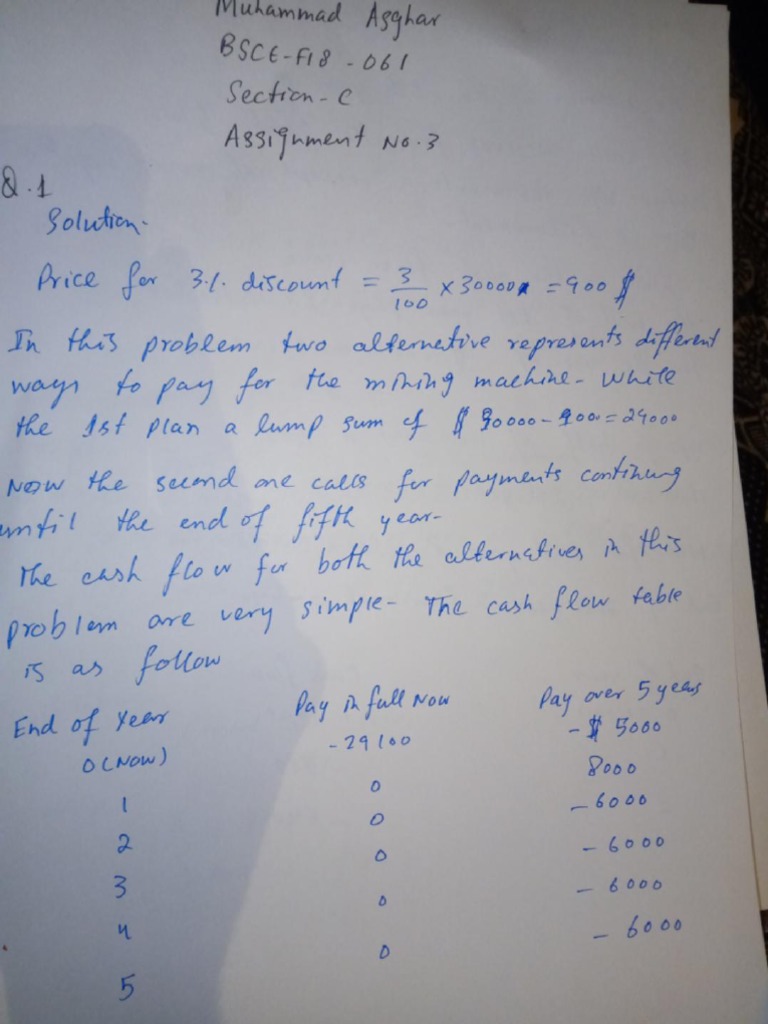 Muhammad Asghar
BSCE-F18-061
Section-C
Assignment No.3
Q.1
Solution-
Price for 3% discount = 3/100 x 30000 = 900 $
In this problem two alternative represents different
ways to pay for the mining machine- While
the 1st plan a lump sum of $ 30000-900=29000
Now the second one calls for payments continung
until the end of fifth year-
The cash flow for both the alternatives in this
problem are very simple- The cash flow table
is as follow
End of Year Pay in full Now Pay over 5 years
0 (NOW) -29100 -$ 5000
1 0 8000
2 0 -6000
3 0 -6000
4 0 -6000
5 0 -6000